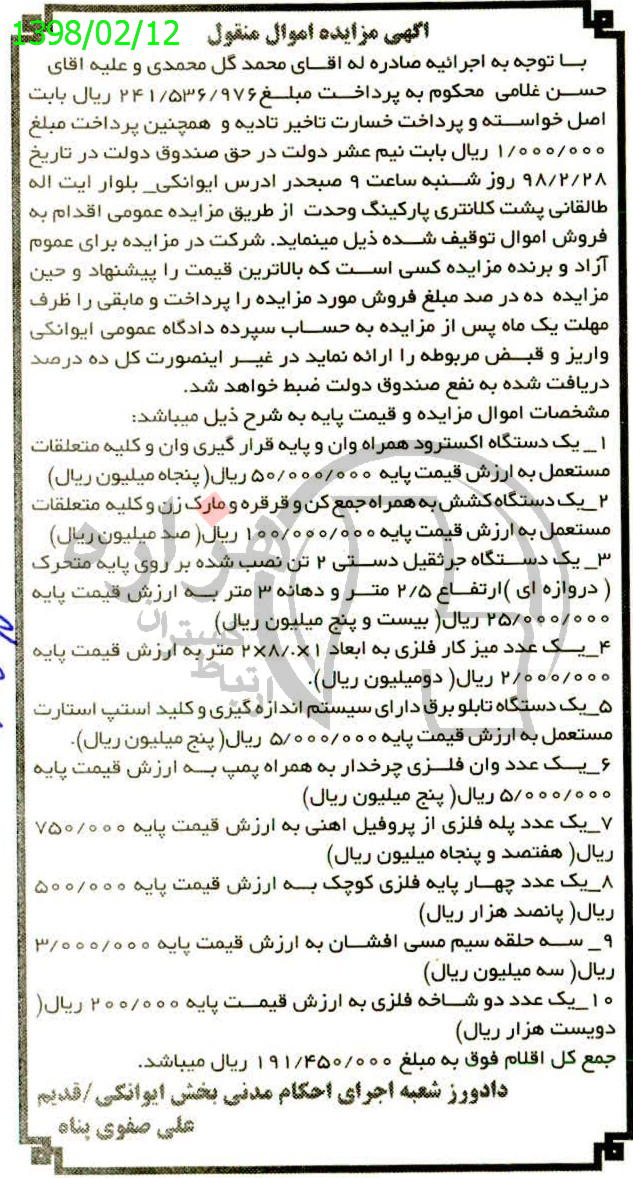 1398/02/12
آگهی مزایده اموال منقول
بـا توجه به اجرائیه صادره له اقـای محمد گل محمدی و علیه اقای
حسن غلامی محکوم به پرداخت مبلغ ۲۴۱/۵۳۶/۹۷۶ ریال بابت
اصل خواسته و پرداخت خسارت تاخیر تادیه و همچنین پرداخت مبلغ
۱/۰۰۰/۰۰۰ ریال بابت نیم عشر دولت در حق صندوق دولت در تاریخ
۹۸/۲/۲۸ روز شنبه ساعت ۹ صبحدر ادرس ایوانکی_ بلوار ایت اله
طالقانی پشت کلانتری پارکینگ وحدت از طریق مزایده عمومی اقدام به
فروش اموال توقیف شده ذیل مینماید. شرکت در مزایده برای عموم
آزاد و برنده مزایده کسی است که بالاترین قیمت را پیشنهاد و حین
مزایده ده در صد مبلغ فروش مورد مزایده را پرداخت و مابقی را ظرف
مهلت یک ماه پس از مزایده به حساب سپرده دادگاه عمومی ایوانکی
واریز و قبض مربوطه را ارائه نماید در غیر اینصورت کل ده درصد
دریافت شده به نفع صندوق دولت ضبط خواهد شد.
مشخصات اموال مزایده و قیمت پایه به شرح ذیل میباشد:
۱_ یک دستگاه اکسترود همراه وان و پایه قرار گیری وان و کلیه متعلقات
مستعمل به ارزش قیمت پایه ۵۰/۰۰۰/۰۰۰ ریال( پنجاه میلیون ریال)
۲_یک دستگاه کشش به همراه جمع کن و قرقره و مارک زن و کلیه متعلقات
مستعمل به ارزش قیمت پایه ۱۰۰/۰۰۰/۰۰۰ ریال( صد میلیون ریال)
۳_ یک دستگاه جرثقیل دستی ۲ تن نصب شده بر روی پایه متحرک
( دروازه ای )ارتفاع ۲/۵ متر و دهانه ۳ متر به ارزش قیمت پایه
۲۵/۰۰۰/۰۰۰ ریال( بیست و پنج میلیون ریال)
۴_یک عدد میز کار فلزی به ابعاد ۱×۰/۸×۲ متر به ارزش قیمت پایه
۲/۰۰۰/۰۰۰ ریال( دومیلیون ریال).
۵_یک دستگاه تابلو برق دارای سیستم اندازه گیری و کلید استپ استارت
مستعمل به ارزش قیمت پایه ۵/۰۰۰/۰۰۰ ریال( پنج میلیون ریال).
۶_یک عدد وان فلزی چرخدار به همراه پمپ به ارزش قیمت پایه
۵/۰۰۰/۰۰۰ ریال( پنج میلیون ریال)
۷_یک عدد پله فلزی از پروفیل اهنی به ارزش قیمت پایه ۷۵۰/۰۰۰
ریال( هفتصد و پنجاه میلیون ریال)
۸_یک عدد چهار پایه فلزی کوچک به ارزش قیمت پایه ۵۰۰/۰۰۰
ریال( پانصد هزار ریال)
۹_ سه حلقه سیم مسی افشان به ارزش قیمت پایه ۳/۰۰۰/۰۰۰
ریال( سه میلیون ریال)
۱۰_یک عدد دو شاخه فلزی به ارزش قیمت پایه ۲۰۰/۰۰۰ ریال(
دویست هزار ریال)
جمع کل اقلام فوق به مبلغ ۱۹۱/۴۵۰/۰۰۰ ریال میباشد.
دادورز شعبه اجرای احکام مدنی بخش ایوانکی /قدیم
علی صفوی پناه
هزاره
ارتباط